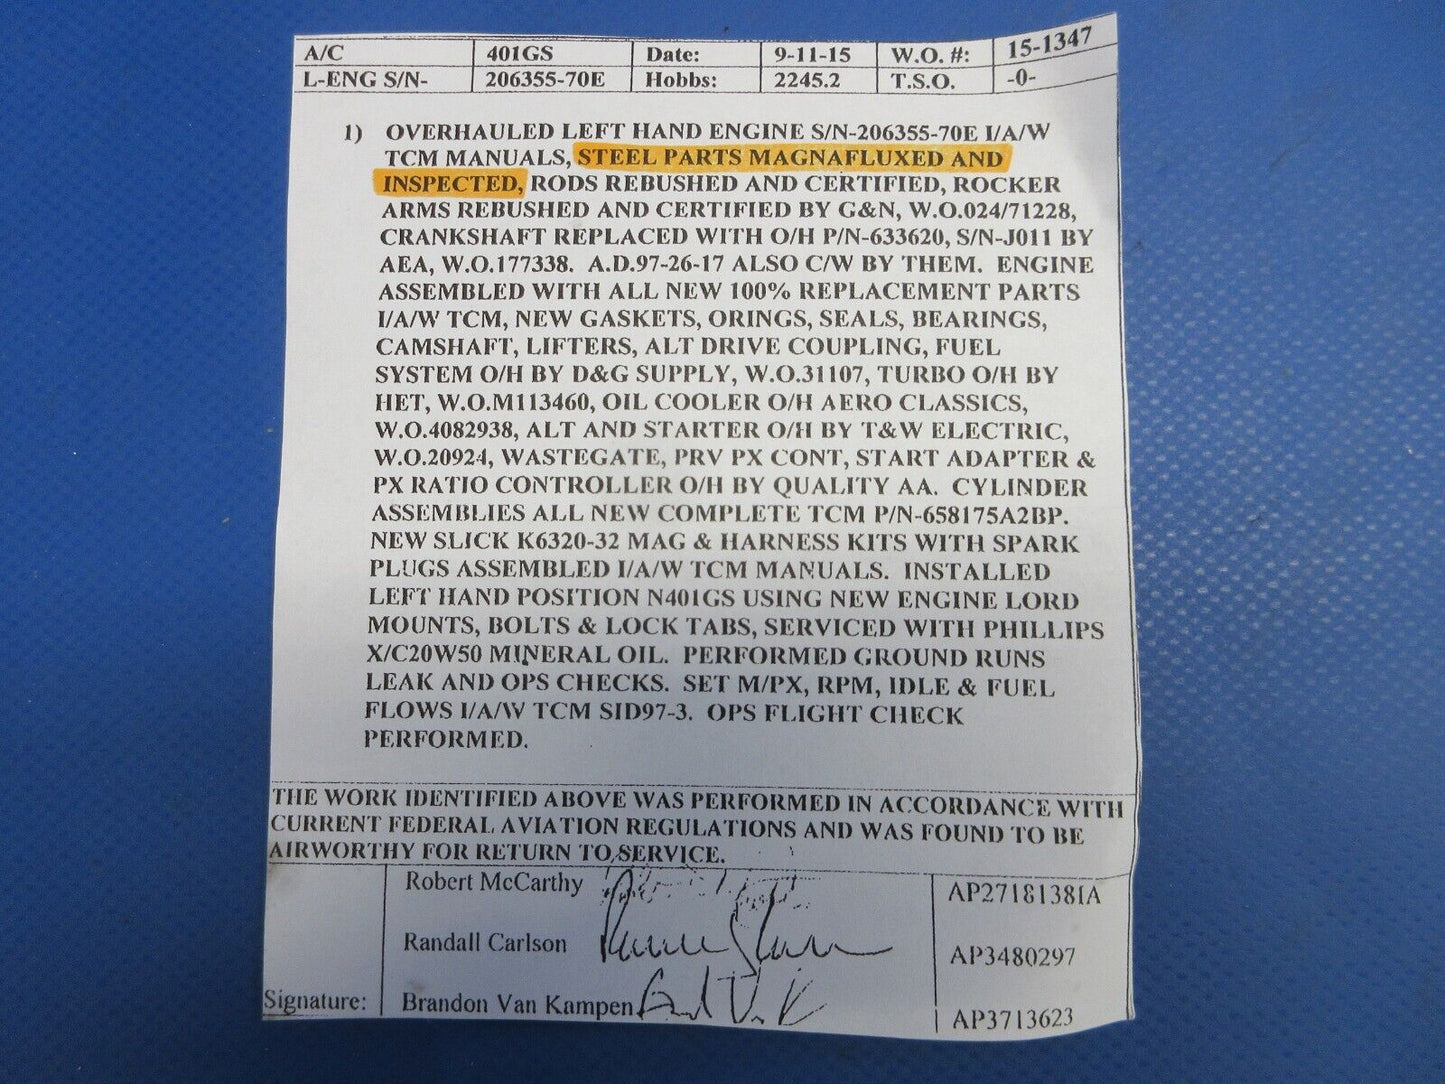 A/C 401GS Date: 9-11-15 W.O. #: 15-1347
L-ENG S/N- 206355-70E Hobbs: 2245.2 T.S.O. -0-
1) OVERHAULED LEFT HAND ENGINE S/N-206355-70E I/A/W
TCM MANUALS, STEEL PARTS MAGNAFLUXED AND
INSPECTED, RODS REBUSHED AND CERTIFIED, ROCKER
ARMS REBUSHED AND CERTIFIED BY G&N, W.O.024/71228,
CRANKSHAFT REPLACED WITH O/H P/N-633620, S/N-J011 BY
AEA, W.O.177338. A.D.97-26-17 ALSO C/W BY THEM. ENGINE
ASSEMBLED WITH ALL NEW 100% REPLACEMENT PARTS
I/A/W TCM, NEW GASKETS, ORINGS, SEALS, BEARINGS,
CAMSHAFT, LIFTERS, ALT DRIVE COUPLING, FUEL
SYSTEM O/H BY D&G SUPPLY, W.O.31107, TURBO O/H BY
HET, W.O.M113460, OIL COOLER O/H AERO CLASSICS,
W.O.4082938, ALT AND STARTER O/H BY T&W ELECTRIC,
W.O.20924, WASTEGATE, PRV PX CONT, START ADAPTER &
PX RATIO CONTROLLER O/H BY QUALITY AA. CYLINDER
ASSEMBLIES ALL NEW COMPLETE TCM P/N-658175A2BP.
NEW SLICK K6320-32 MAG & HARNESS KITS WITH SPARK
PLUGS ASSEMBLED I/A/W TCM MANUALS. INSTALLED
LEFT HAND POSITION N401GS USING NEW ENGINE LORD
MOUNTS, BOLTS & LOCK TABS, SERVICED WITH PHILLIPS
X/C20W50 MINERAL OIL. PERFORMED GROUND RUNS
LEAK AND OPS CHECKS. SET M/PX, RPM, IDLE & FUEL
FLOWS I/A/W TCM SID97-3. OPS FLIGHT CHECK
PERFORMED.
THE WORK IDENTIFIED ABOVE WAS PERFORMED IN ACCORDANCE WITH
CURRENT FEDERAL AVIATION REGULATIONS AND WAS FOUND TO BE
AIRWORTHY FOR RETURN TO SERVICE.
Robert McCarthy AP27181381A
Randall Carlson AP3480297
Signature: Brandon Van Kampen AP3713623